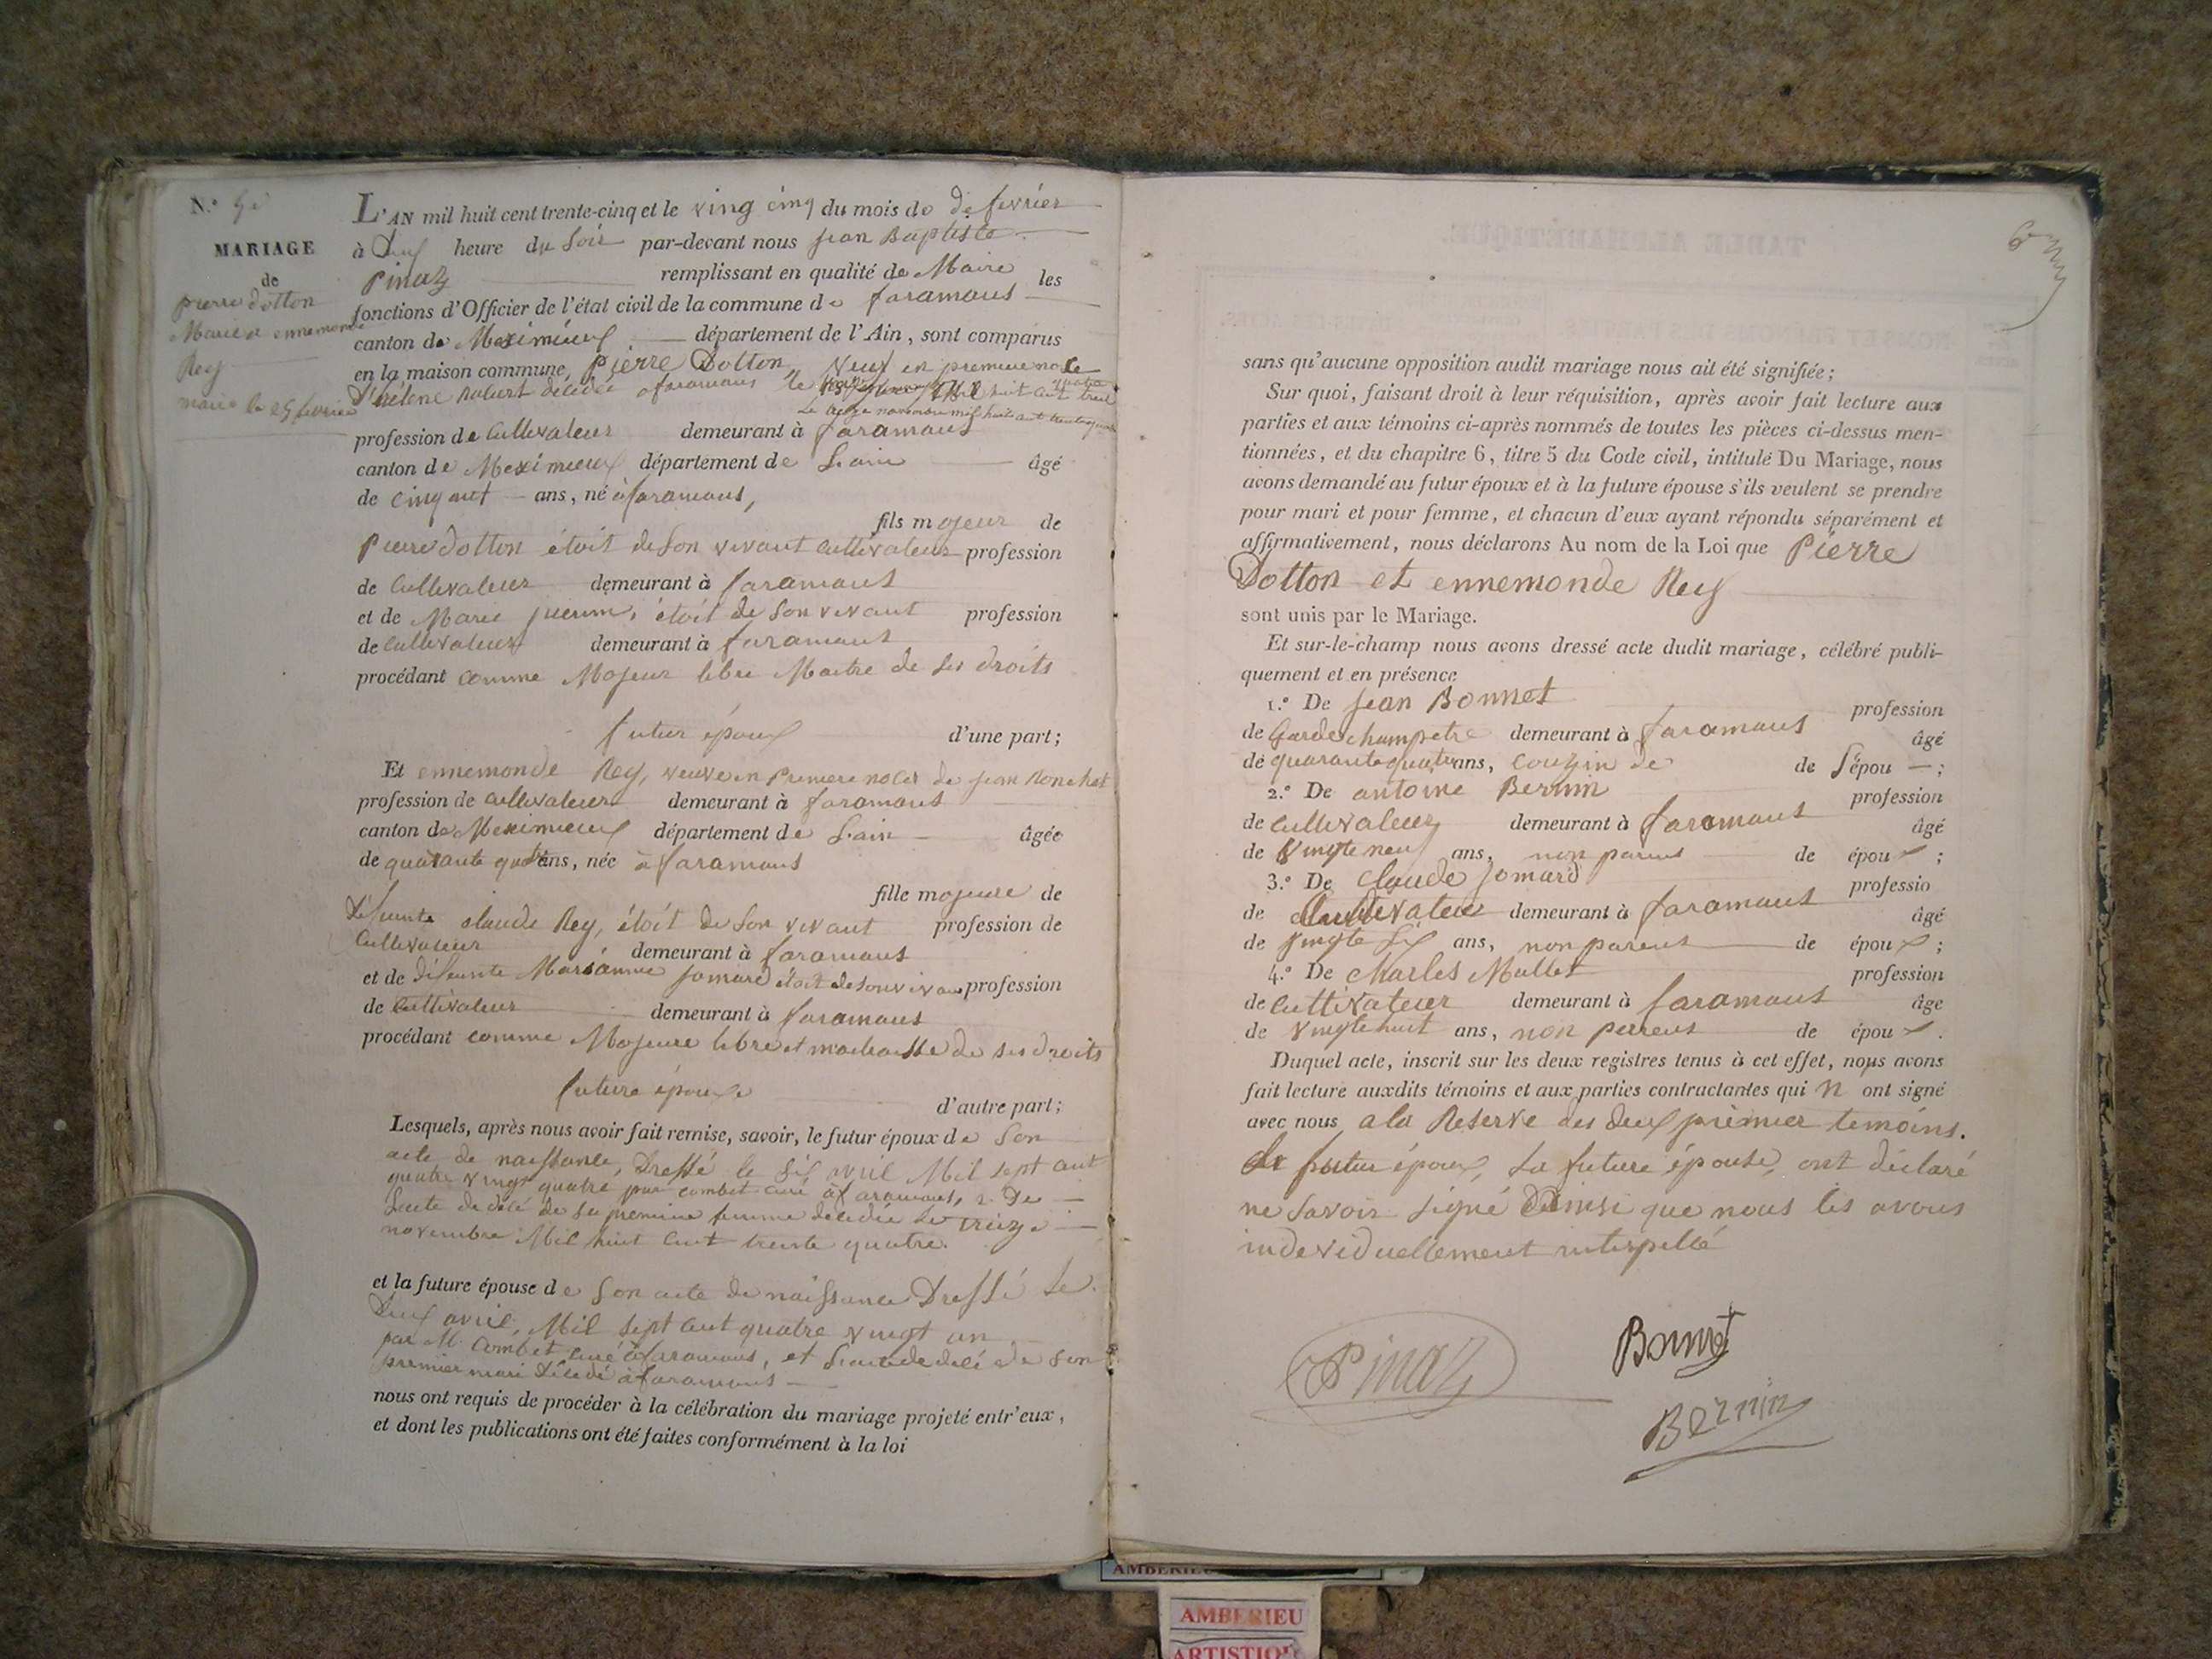 N.°
MARIAGE
de
pierre dotton
Marie a ennemonde
Rey
marié le 25 fevrier
L'AN mil huit cent trente-cinq et le ving cinq du mois de de fevrier
à Deux heure du Soir par-devant nous jean Baptiste
Pinaz remplissant en qualité de Maire les
fonctions d'Officier de l'état civil de la commune de faramans
canton de Meximieux département de l'Ain, sont comparus
en la maison commune, Pierre Dotton, Veuf en premiere noce
D'hélene Robert décédée a faramans le
Le treize novembre mil huit cent trente quatre
profession de Cultivateur demeurant à faramans
canton de Meximieux département de L'ain âgé
de cinquant ans, né à faramans,
fils majeur de
Pierre dotton étoit de son vivant cultivateur profession
de Cultivateur demeurant à faramans
et de Marie étoit de Son vivant profession
de Cultivateur demeurant à faramans
procédant comme Majeur libre Maitre de ses droits
futur époux d'une part;
Et ennemonde Rey, veuve en Premiere noces de jean Ronchet
profession de cultivateur demeurant à faramans
canton de Meximieux département de L'ain âgée
de quarante quatre ans, née à faramans
fille majeure de
défunte claude Rey, étoit de Son vivant profession de
Cultivateur demeurant à faramans
et de défunte Marianne Jomard étoit de son vivant profession
de Cultivateur demeurant à faramans
procédant comme Majeure libre et maitraisse de ses droits
future épouse d'autre part;
Lesquels, après nous avoir fait remise, savoir, le futur époux de Son
acte de naissance, Dressé le Six avril Mil sept cent
quatre vingt quatre par combet curé à faramans, 2. De
Lacte de décé de sa premiere femme décédée le treize
novembre Mil huit cent trente quatre.
et la future épouse de Son acte de naissance Dressé le
Deux avril, Mil sept cent quatre vingt un
par M. Combet curé à faramans, et Lacte de décé de son
premier mari décédé à faramans
nous ont requis de procéder à la célébration du mariage projeté entr'eux,
et dont les publications ont été faites conformément à la loi
sans qu'aucune opposition audit mariage nous ait été signifiée;
Sur quoi, faisant droit à leur réquisition, après avoir fait lecture aux
parties et aux témoins ci-après nommés de toutes les pièces ci-dessus men-
tionnées, et du chapitre 6, titre 5 du Code civil, intitulé Du Mariage, nous
avons demandé au futur époux et à la future épouse s'ils veulent se prendre
pour mari et pour femme, et chacun d'eux ayant répondu séparément et
affirmativement, nous déclarons Au nom de la Loi que Pierre
Dotton et ennemonde Rey
sont unis par le Mariage.
Et sur-le-champ nous avons dressé acte dudit mariage, célébré publi-
quement et en présence
1.° De jean Bonnet profession
de Garde champetre demeurant à faramans âgé
de quarante quatre ans, couzin de de L'épou ;
2.° De antoine Bernin profession
de Cultivateur demeurant à faramans âgé
de Vingte neuf ans, non parens de époux ;
3.° De claude Jomard professio
de Cultivateur demeurant à faramans âgé
de vingte six ans, non parens de époux ;
4.° De charles Mullet profession
de Cultivateur demeurant à faramans âge
de Vingte huit ans, non parens de époux .
Duquel acte, inscrit sur les deux registres tenus à cet effet, nous avons
fait lecture auxdits témoins et aux parties contractantes qui n ont signé
avec nous a la Reserve des deux prémier temoins.
Le futur époux, La future épouse, ont déclaré
ne Savoir signé Dainsi que nous les avons
individuellement interpellé
Pinaz
Bonnet
Bernin
AMBERIEU
AMBERIEU
ARTISTIQUE